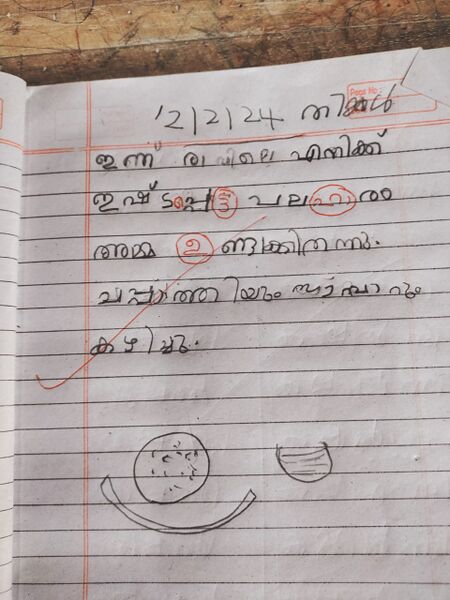 Page No.:
12/2/24 തിങ്കൾ
ഇന്ന് രാവിലെ എനിക്ക്
ഇഷ്ടപ്പെട്ട പലഹാരം
അമ്മ ഉണ്ടാക്കിതന്നു.
ചപ്പാത്തിയും സാമ്പാറും
കഴിച്ചു.